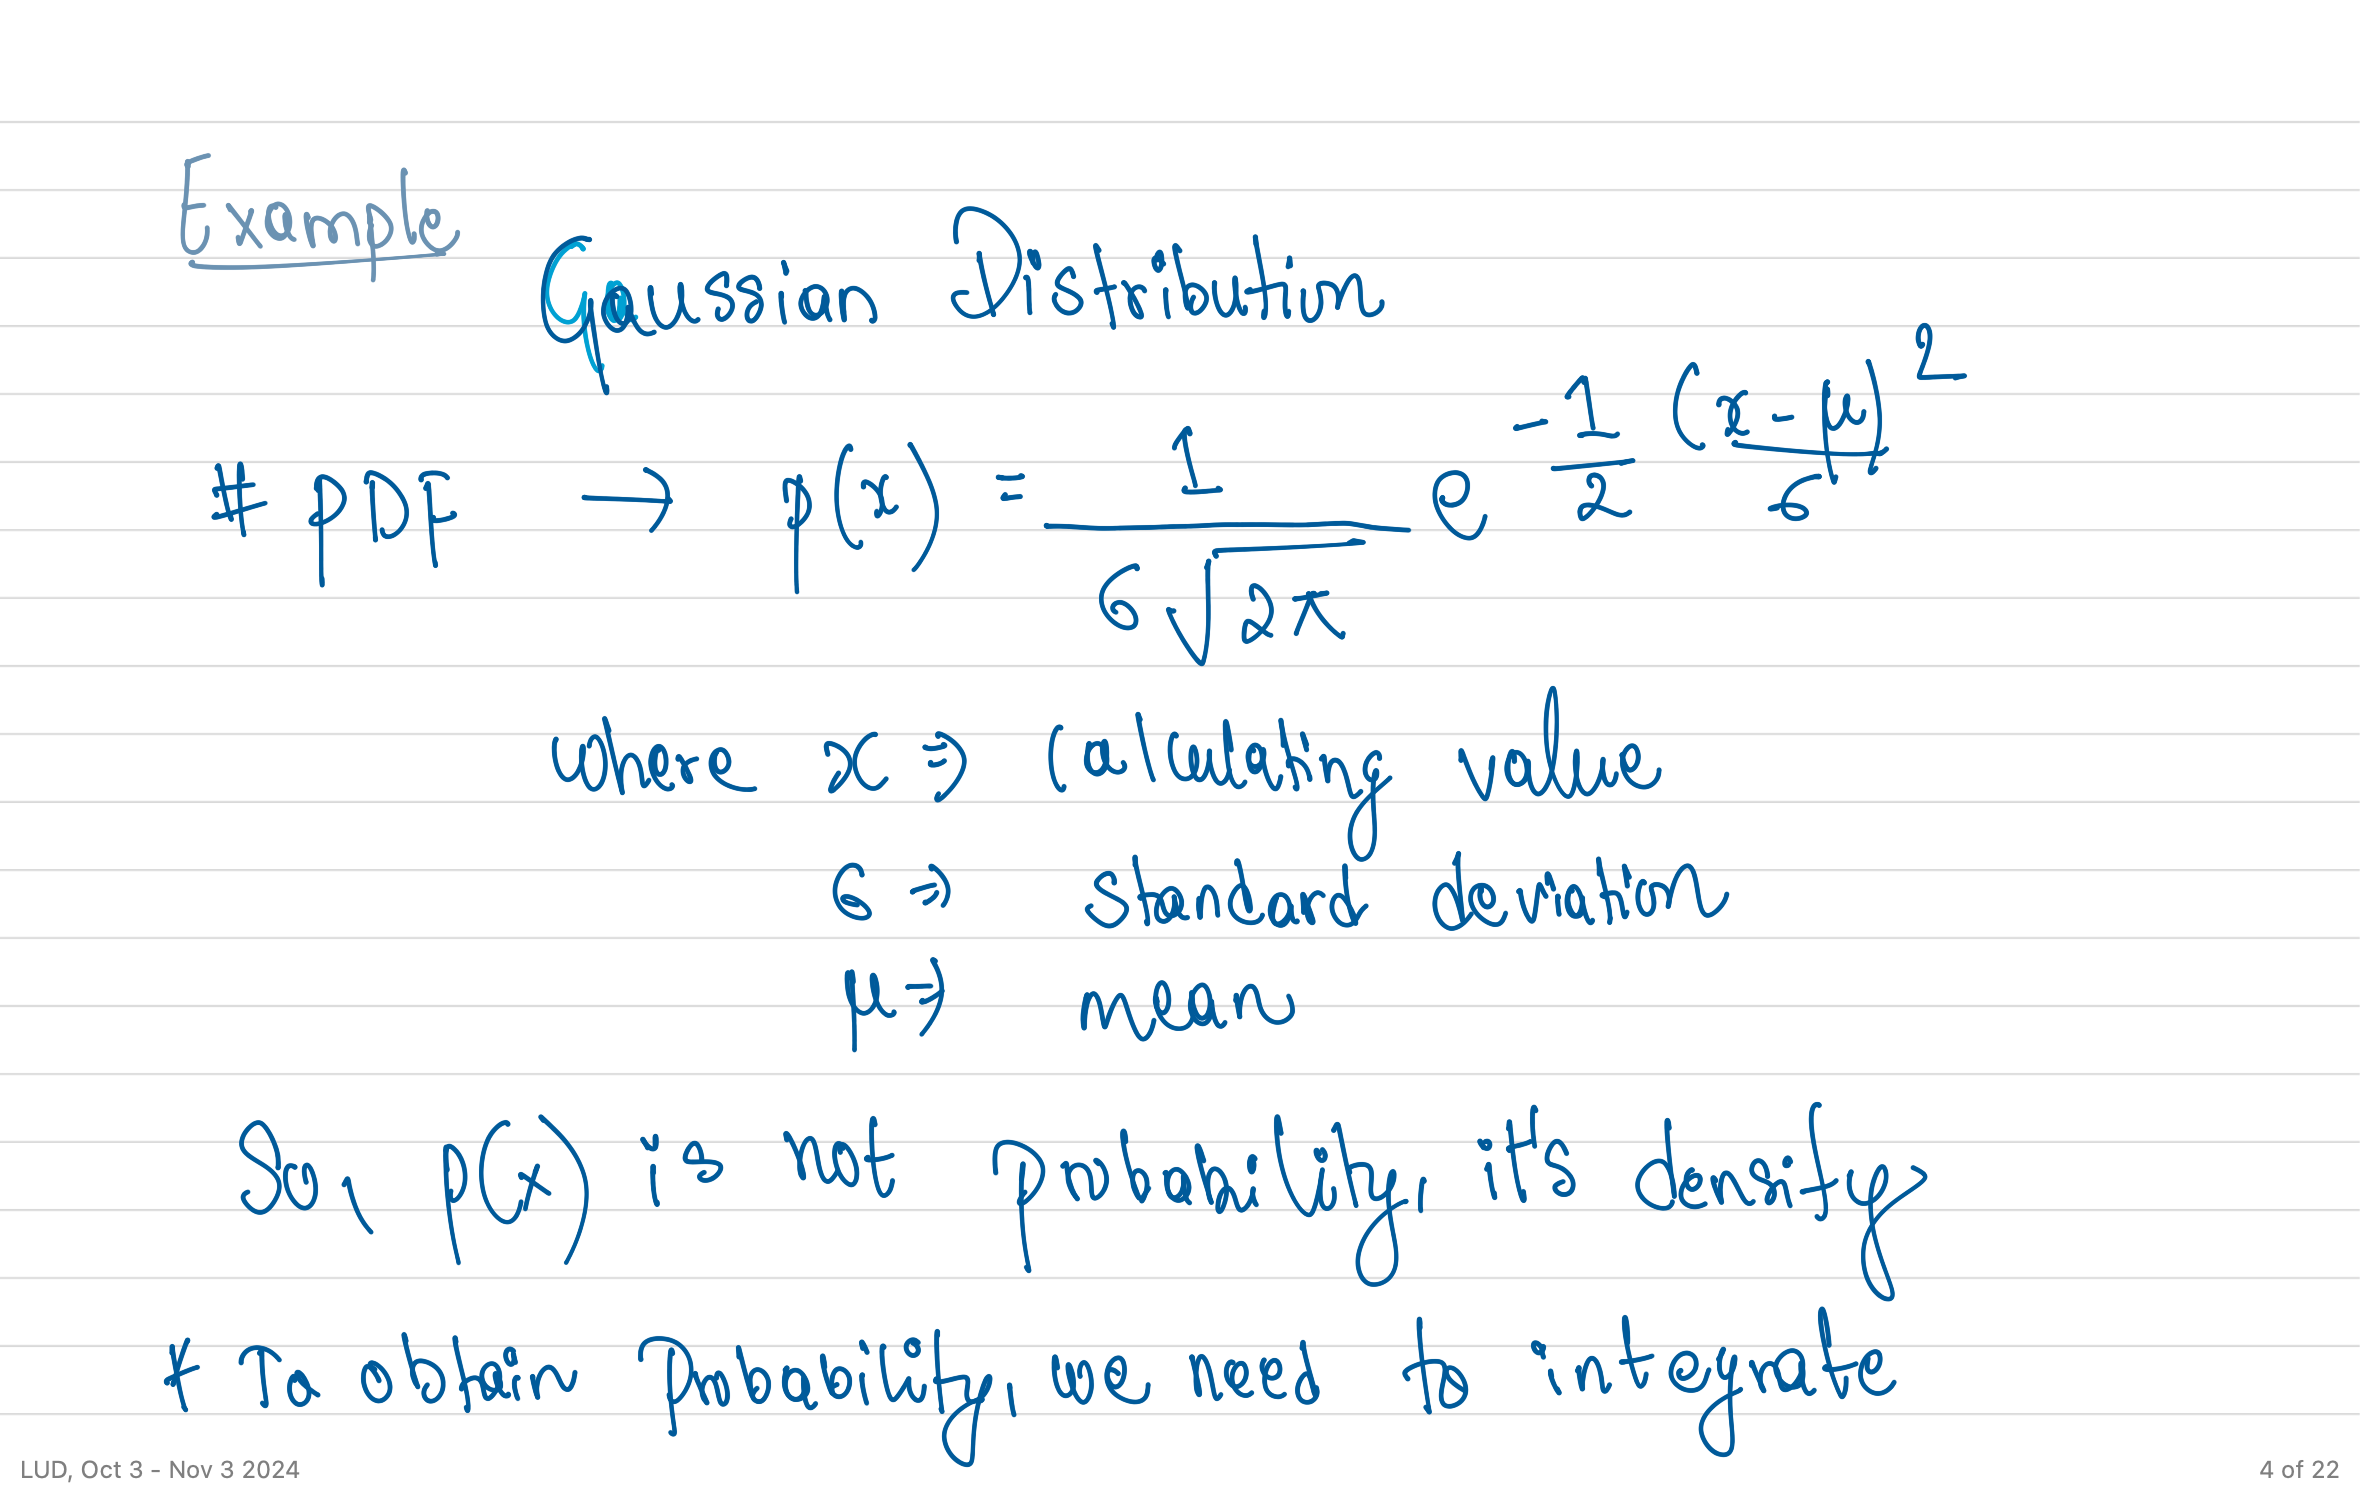 Example
Gaussian Distribution
# pDF → p(x) = 1 / (σ√2π) e^(-1/2 ((x-μ)/σ)^2)
where x ⇒ Calculating value
σ ⇒ standard deviation
μ ⇒ mean
So, p(x) is not probability, it's density
* To obtain Probability, we need to integrate
LUD, Oct 3 - Nov 3 2024
4 of 22